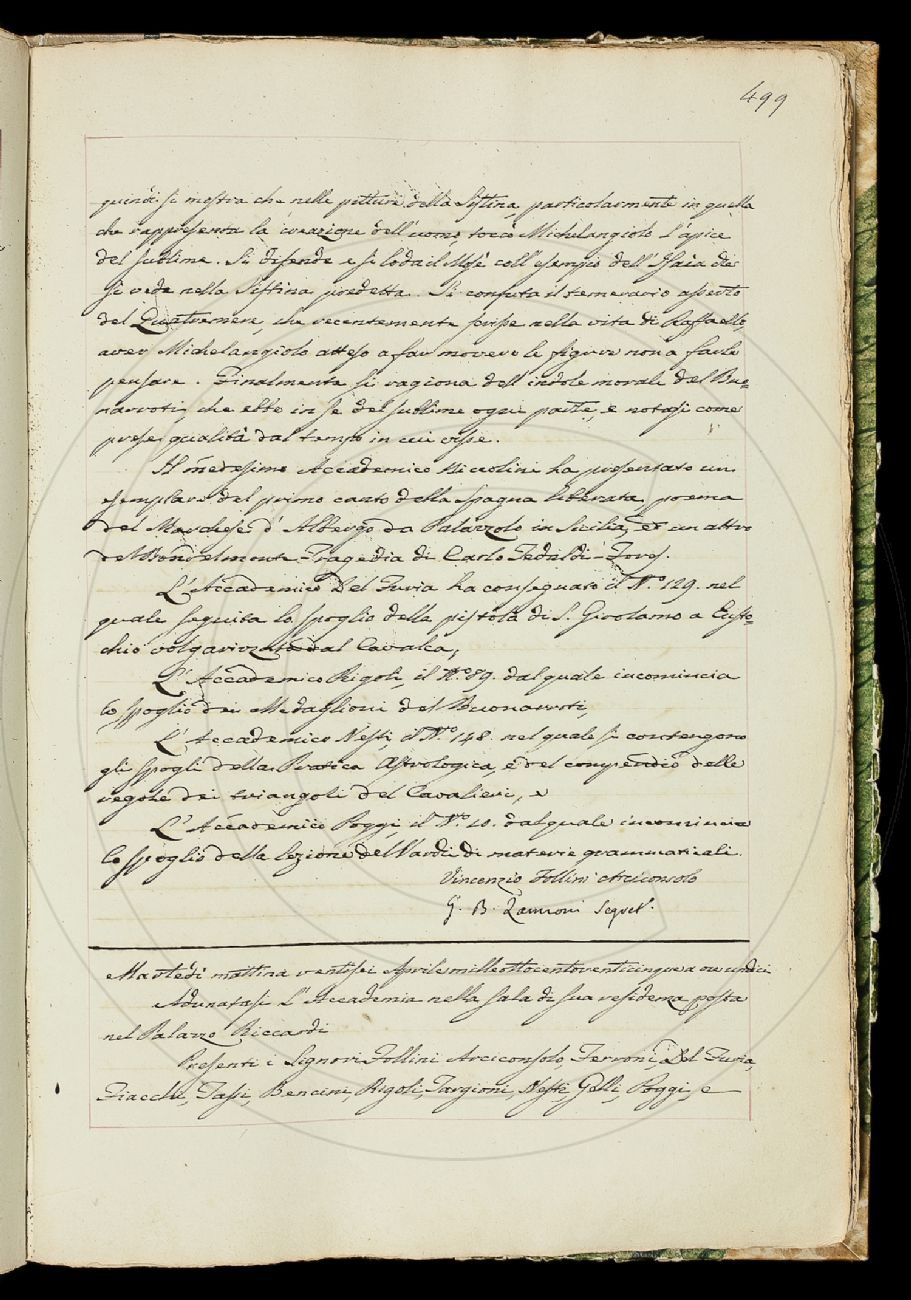 499
quindi si mostra che nelle pitture della Sistina, particolarmente in quella
che rappresenta la creazione dell'uomo, toccò Michelangiolo l'apice
del sublime. Si difende e si loda il Mosè coll'esempio dell'Isaia che
si vede nella Sistina predetta. Si confuta il temerario asserto
del Quatremere, che recentemente scrisse nella vita di Raffaello,
aver Michelangiolo atteso a far movere le figure non a farle
pensare. Finalmente si ragiona dell'indole morale del Buo=
narroti, che ebbe in se del sublime ogni parte, e notasi come
prese qualità dal tempo in cui visse.
Il medesimo Accademico Niccolini ha presentato un
esemplare del primo canto della Spagna liberata, poema
del Marchese d'Albergo da Palazzolo in Sicilia, et un altro
del Bondelmonte Tragedia di Carlo Tedaldi-Fores.
L'Accademico Del Furia ha consegnato il N.º 129. nel
quale seguita lo spoglio della pistola di S. Girolamo a Eusto=
chio volgarizzata dal Cavalca,
L'Accademico Rigoli, il N.º 89. dal quale incomincia
lo spoglio dei Medaglioni del Buonarroti,
L'Accademico Nesti, il N.º 148. nel quale si contengono
gli spogli della Pratica Astrologica, e del compendio delle
regole dei triangoli del Cavalieri, e
L'Accademico Poggi, il N.º 10. dal quale incomincia
lo spoglio della lezione del Varchi di materie grammaticali.
Vincenzio Follini Arciconsolo
G. B. Zannoni Segret.
Martedì mattina ventisei Aprile milleottocentoventicinque a ore undici
Adunatasi l'Accademia nella sala di sua residenza posta
nel Palazzo Riccardi
Presenti i Signori Follini Arciconsolo, Ferroni, Del Furia,
Fiacchi, Tassi, Bencini, Rigoli, Targioni, Nesti, Gelli, Poggi, e